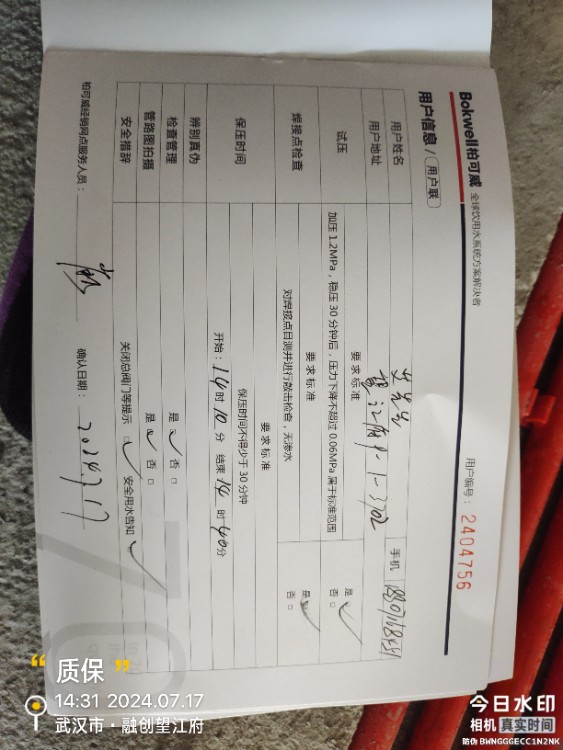 Bokwell柏可威 全球饮用水系统方案解决者
用户编号：2404756
用户信息/(用户联)
用户姓名
手机
用户地址 望江府9-1-3702
试压
要求标准
加压1.2MPa，稳压30分钟后，压力下降不超过0.06MPa属于标准范围
是 ✓
否 □
焊接点检查
要求标准
对焊接点目测并进行敲击检查，无渗水
是 ✓
否 □
保压时间
要求标准
保压时间不得少于30分钟
开始：14时10分 结束14时40分
辨别真伪
检查管理 是 ✓ 否 □
管路图拍摄 是 ✓ 否 □
安全措辞 关闭总阀门等提示 ✓ 安全用水告知 ✓
柏可威经销网点服务人员：
确认日期：2024.7.17
“质保”
14:31 2024.07.17
武汉市·融创望江府
今日水印
相机 真实时间
防伪 BWNGGGECC1N2NK